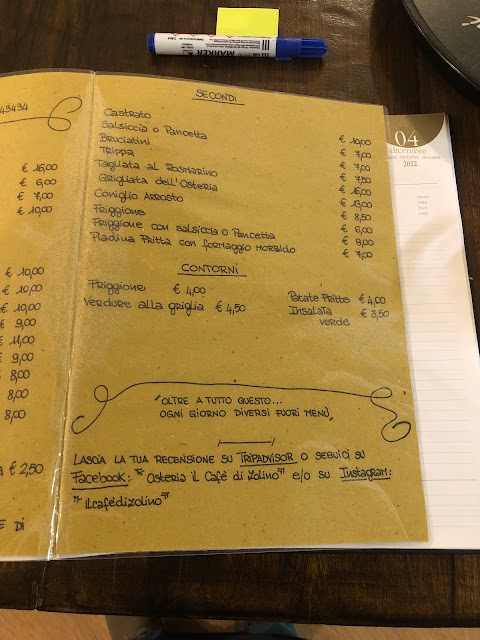 43434
€ 16,00
€ 6,00
€ 7,00
€ 10,00
€ 10,00
€ 10,00
€ 10,00
€ 9,00
€ 11,00
€ 9,00
€ 8,00
8,00
8,00
€ 2,50
E DI
MARKER
SECONDI
Castrato € 10,00
Salsiccia o Pancetta € 7,00
Bruciatini € 7,00
Trippa € 7,50
Tagliata al Rosmarino € 16,00
Grigliata dell'Osteria € 13,00
Coniglio Arrosto € 8,50
Friggione € 6,00
Friggione con salsiccia o Pancetta € 9,00
Piadina Fritta con formaggio morbido € 7,00
CONTORNI
Friggione € 4,00 Patate Fritte € 4,00
Verdure alla griglia € 4,50 Insalata verde € 3,50
"OLTRE A TUTTO QUESTO...
OGNI GIORNO DIVERSI FUORI MENÙ"
LASCIA LA TUA RECENSIONE SU TRIPADVISOR O SEGUICI SU
Facebook: "Osteria il Cafè di Zolino" e/o su Instagram:
"ilcafèdizolino"
04
dicembre
2022